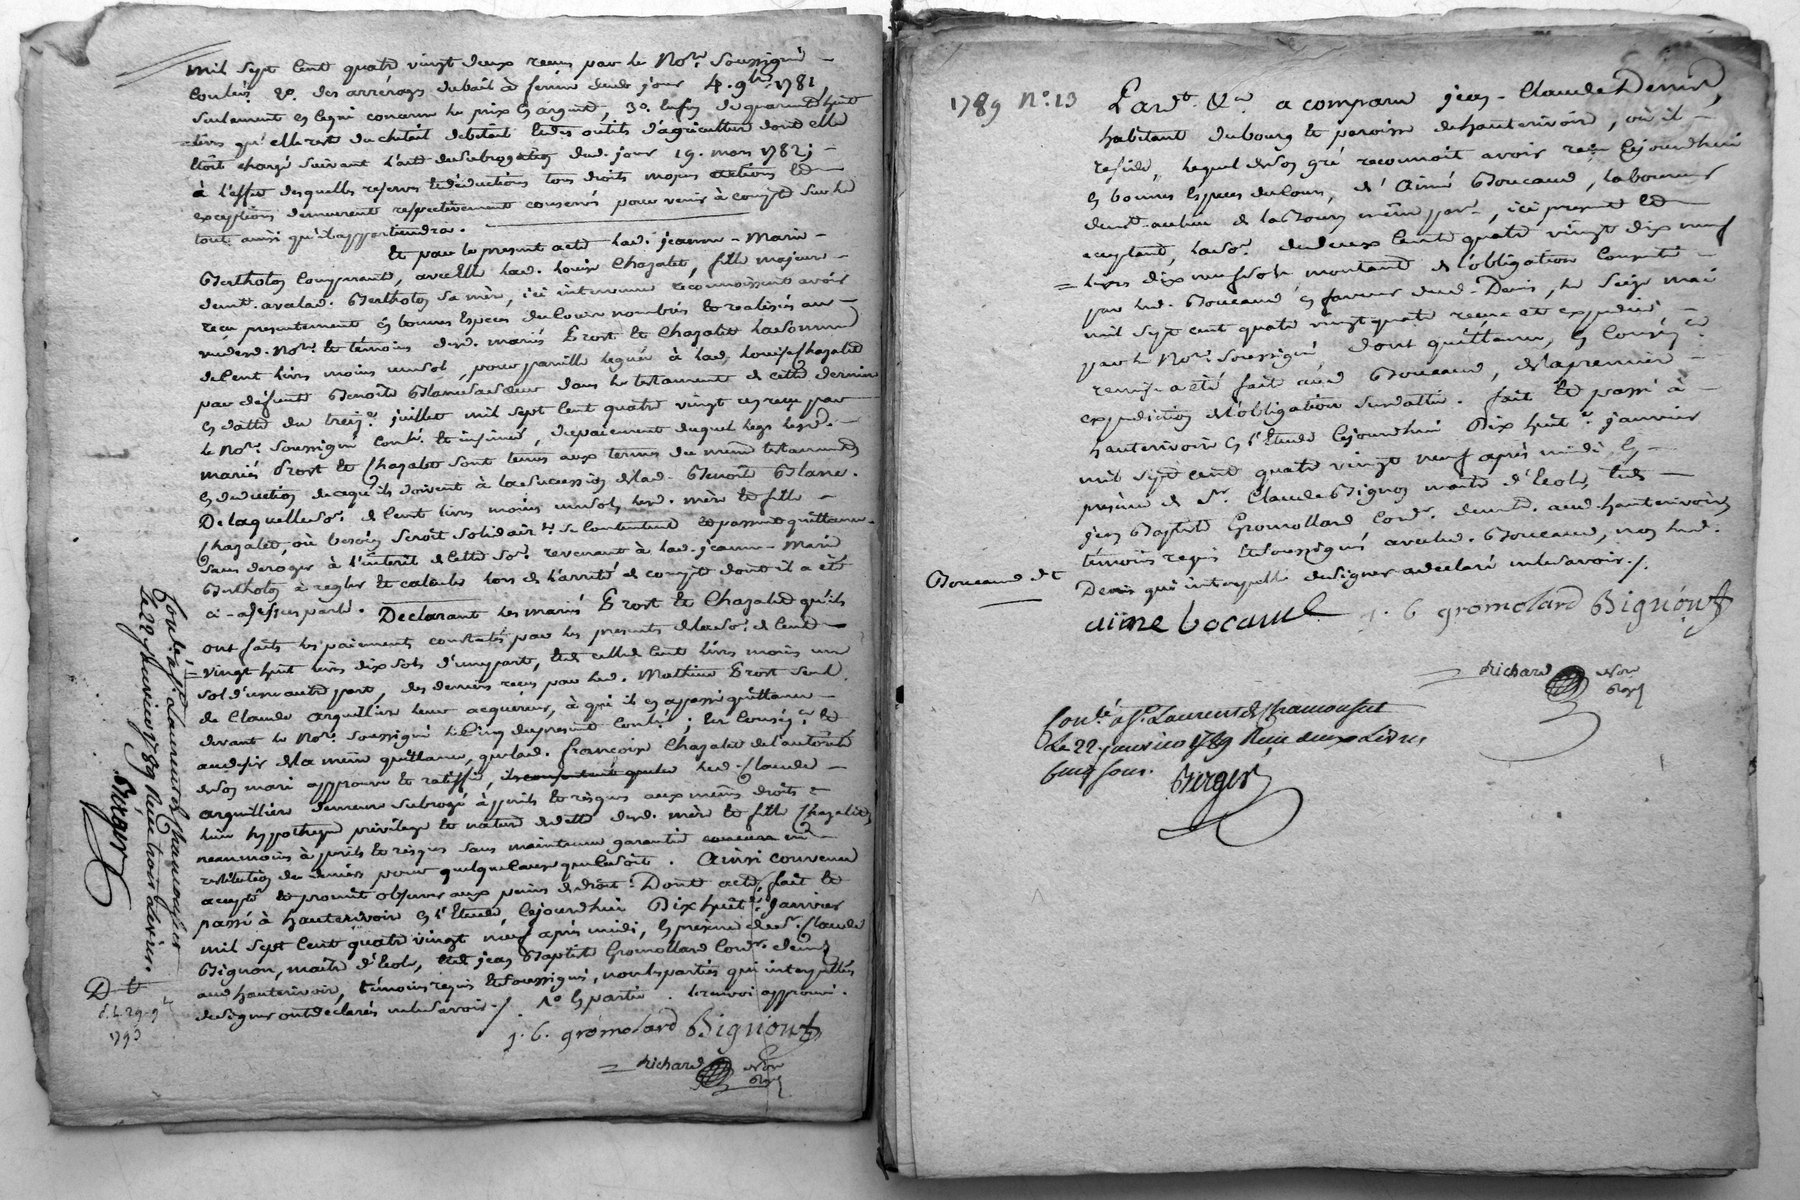 mil sept cent quatre vingt deux recu par le No.re soussigné
2.o des arrérages du bail à ferme dud. jour 4. 9bre 1781,
seulement en ce qui concerne le prix en argent, 3.o enfin de quarante huit
livres qu'elle reste du cheptel de bétail et des outils d'agriculture dont elle
étoit chargé suivant l'acte de subrogation dud. jour 19. mars 1782;
à l'effet desquelles reserves et déductions tous droits moyens actions et
exceptions demeurent respectivement conservés pour venir à compte sur le
tout ainsi qu'il appartiendra.
Et par le present acte lad. jeanne-Marie
Bertholon comparante, avec elle lad. Louise Chazalet, fille majeure
demt. avec lad. Bertholon sa mère, ici intervenue reconnoissent avoir
reçu presentement en bonnes espèces du cours nombrés et realisés au
vu desd. No.re et témoins desd. mariés Prost et Chazalet la somme
de cent livres moins un sol, pour pareille leguée à lad. Louise Chazalet
par défunte Benoite Blanc sa dans le testament de cette derniere
en datte du treize juillet mil sept cent quatre vingt un reçu par
le No.re soussigné conl.é et insinué, du paiement duquel legs lesd.
mariés Prost et Chazalet sont tenus aux termes du meme testament
en deduction de ce qu'ils doivent à la succession de lad. Benoite Blanc.
De laquelle so.e de cent livres moins un sol, lesd. mère et fille
Chazalet, où besoin seroit solidair.t se contentent et passent quittance
sans deroger à l'interêt de cette so.e revenant à lad. jeanne-Marie
Bertholon à regler et calculer lors de l'arrêté de compte dont il a été
ci-dessus parlé. Declarant les mariés Prost et Chazalet qu'ils
ont faits les paiements constatés par les presentes de la so.e de cent
vingt huit livres dix sols d'une part, et de celle de cent livres moins un
sol d'une autre part, des deniers reçus par led. Mathieu Prost seul
de Claude Arquillière leur acquéreur, à qui il en a passé quittance
devant le No.re soussigné le cinq du present conl.é; en conséq.ce et
au desir de la même quittance, que lad. françoise Chazalet de l'autorité
de son mari approuve et ratiffie, led. Claude
arquillière demeure subrogé à périls et risques aux mêmes droits
lieu hypotheque privilege et nature de dette desd. mère et fille Chazalet
neanmoins à périls et risques sans maintenue garantie ni
restitution de deniers pour quelque cause que ce soit. Ainsi convenu
accepté et promit observer aux peines de droit. Dont acte, fait et
passé à hauterivoire en l'Etude, cejourdhui Dix huit.e janvier
mil sept cent quatre vingt neuf après midi, en présence de S.r Claude
Bignon, maitre d'école, et de jean Baptiste Gromollard cord.r demt.
aud. hauterivoire, témoins requis et soussignés, non les parties qui interpellés
de signer ont declarés ne le savoir ./. le renvoi approuvé.
j. b. gromolard Bignon
Richard No.re
Royl
Conl.é à S.t Laurent de Chamousset
le 22 janvier 1789 Reçu trois livres.
Berger
D t
d. L. 29. 9
1793
1789 N.o 13
Pardt. &a a comparu jean-Claude Denis,
habitant du bourg et paroisse de hauterivoire, où il
reside, lequel de son gré reconnoit avoir reçu cejourdhui
en bonnes especes du cours, d'Aimé Boucaud, laboureur
demt. au lieu de la Bourg même par.e, ici present et
acceptant, la so.e de deux cents quatre vingt dix neuf
livres dix neuf sols montant de l'obligation consentie
par led. Boucaud en faveur dud. Denis, le seize mai
mil sept cent quatre vingt quatre recue et expediée,
par le No.re soussigné, dont quittance, en conséq.ce
remise a été faite aud. Boucaud, de la premiere
expedition de l'obligation susdattée. fait et passé à
hauterivoire en l'Etude cejourdhui Dix huit.e janvier
mil sept cent quatre vingt neuf après midi, en
présence de S.r Claude Bignon maitre d'école, et de
jean Baptiste Gromollard cord.r demt. aud. hauterivoire
témoins requis et soussignés avec led. Boucaud, non led.
Denis qui interpellé de signer a declaré ne le savoir ./.
Boucaud dt
aime bocaud j. b. gromolard Bignon
Richard No.re
Royl
Conl.é à S.t Laurent de Chamousset
le 22 janvier 1789 Reçu deux Livres
cinq sous.
Berger